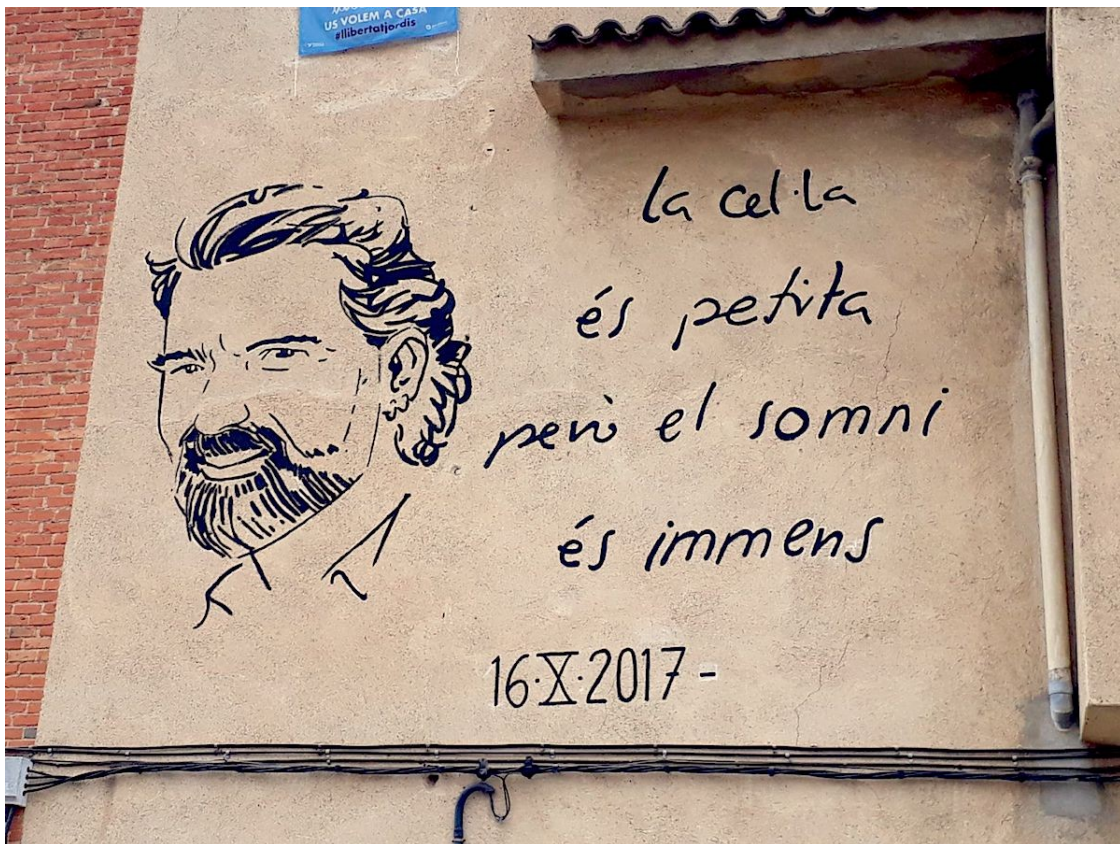 US VOLEM A CASA
#llibertatjordis
la cel·la
és petita
però el somni
és immens
16·X·2017-